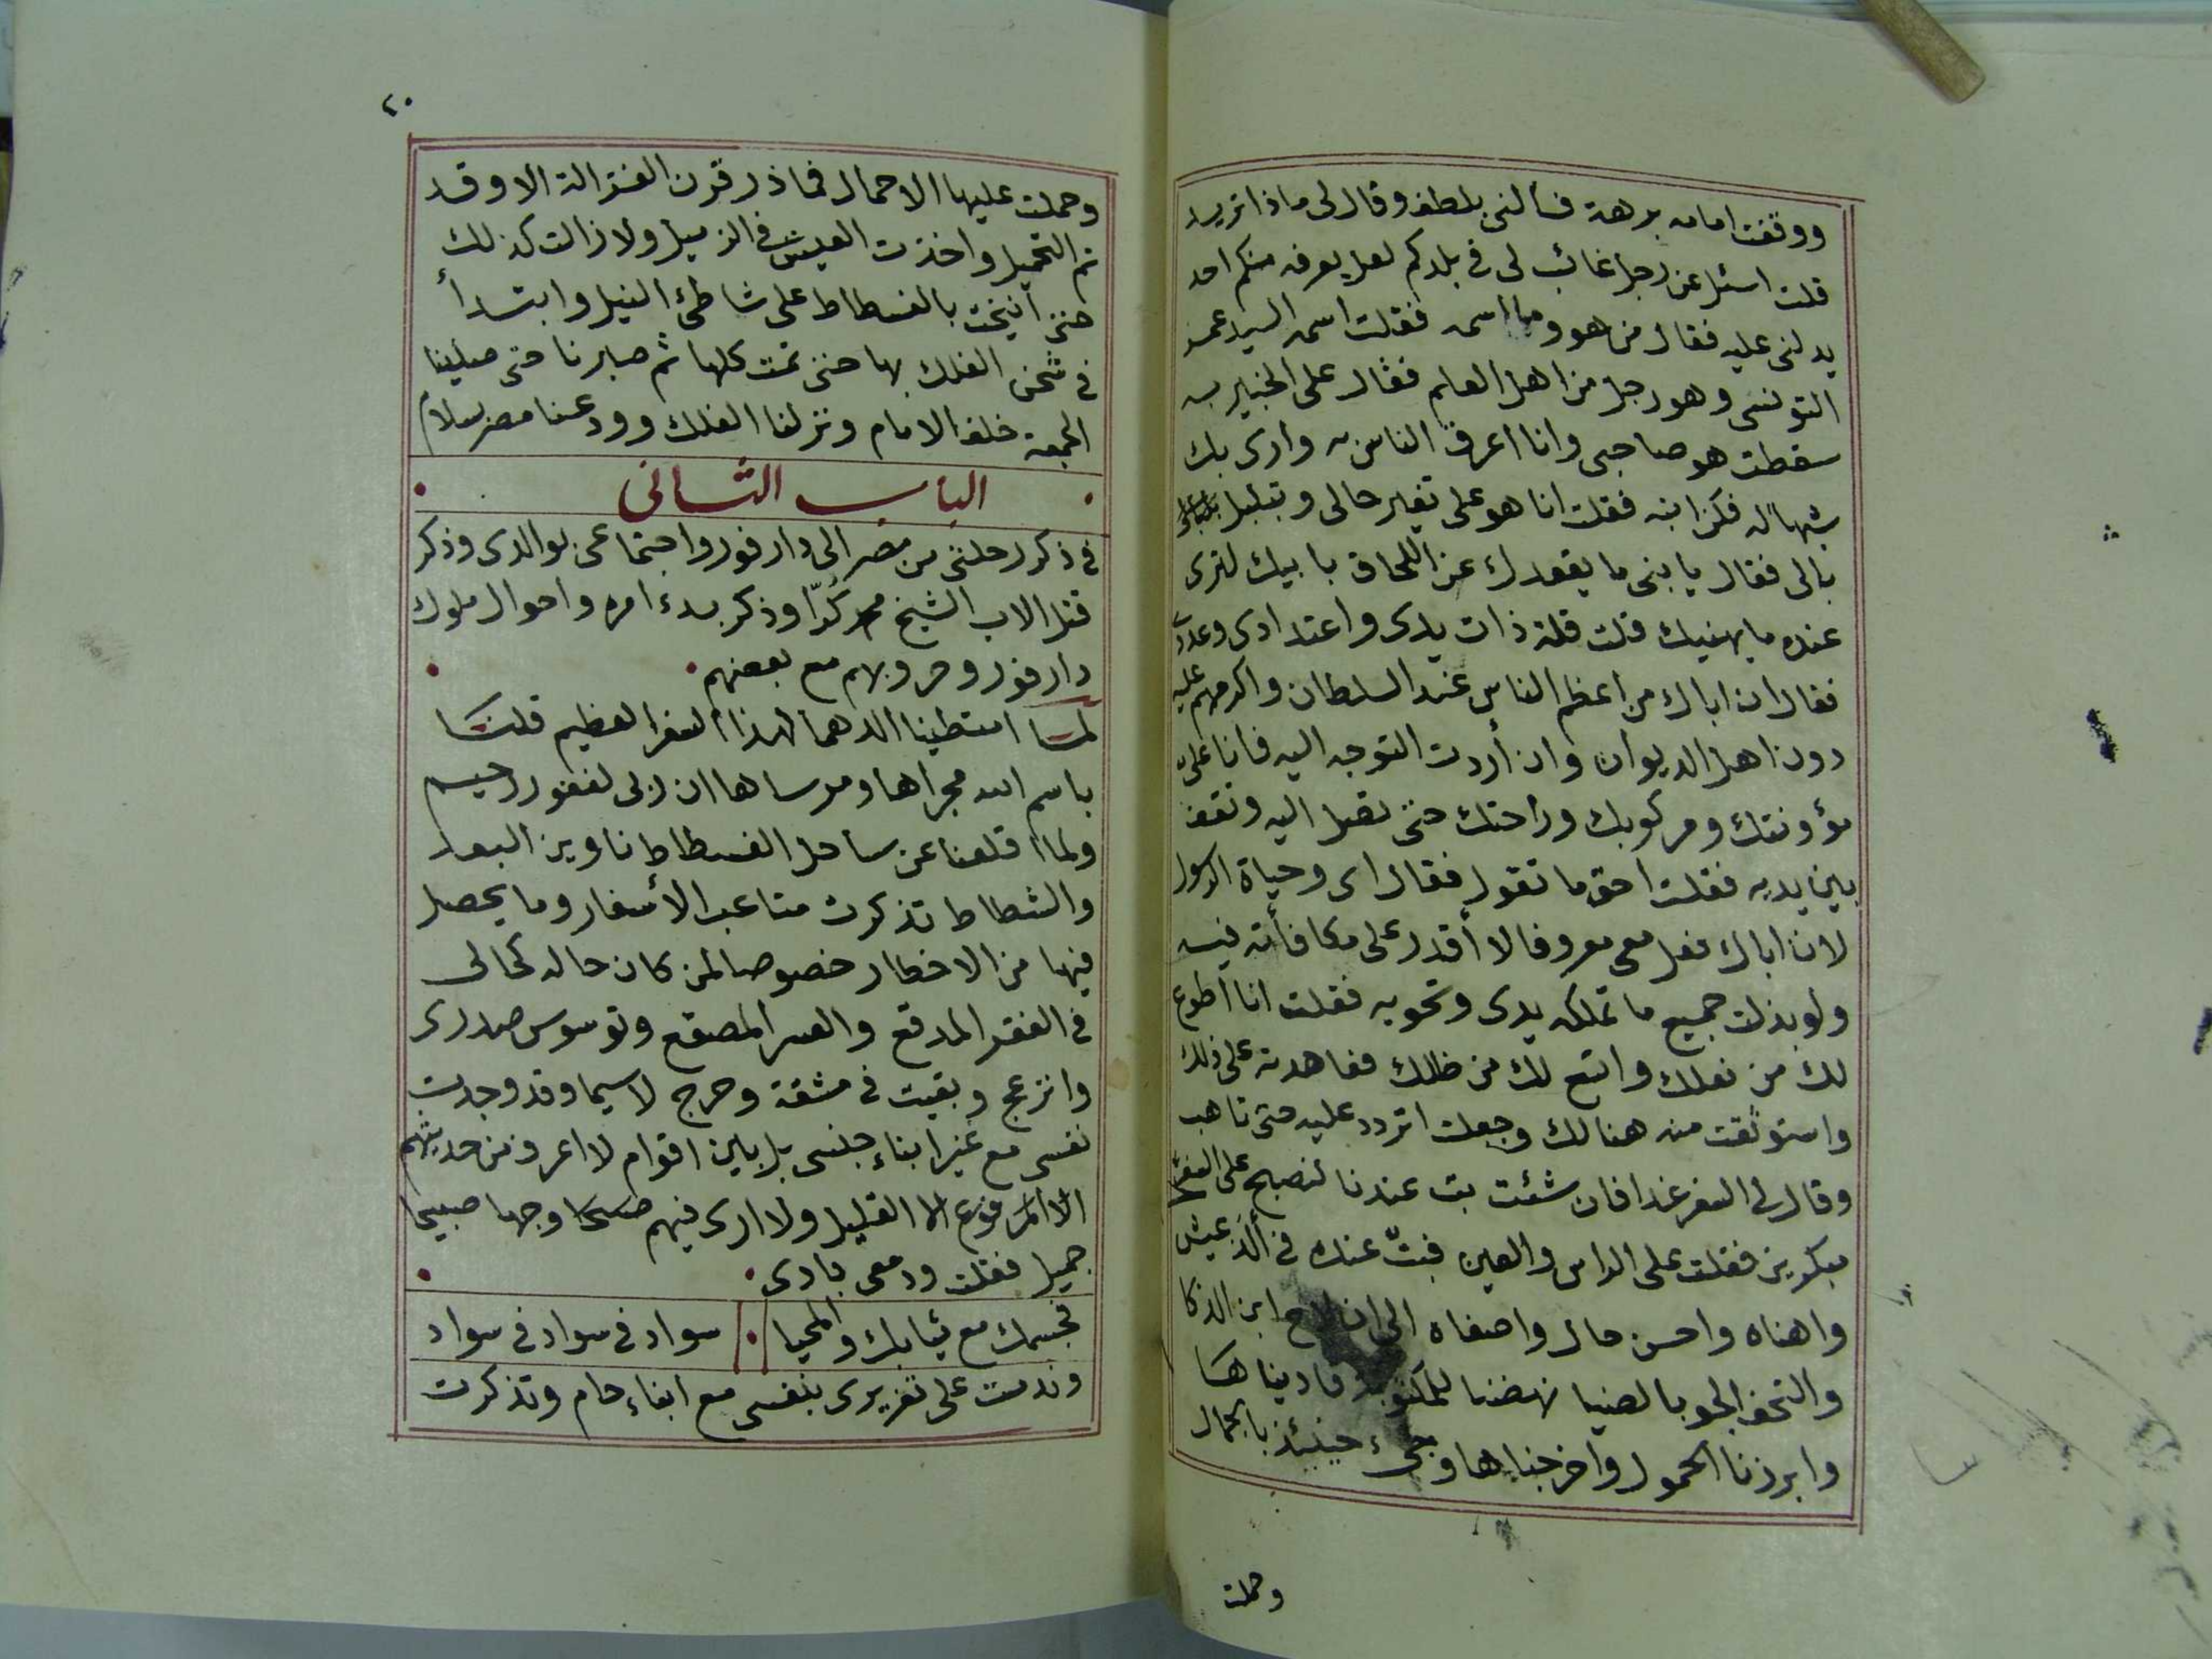 ووقفت امامه برهة فسألنى بلطف وقال لى ماذا تريد
قلت اسئل عن رجل غائب لى فى بلدكم لعل يعرفه منكم احد
يدلنى عليه فقال من هو وما اسمه فقلت اسمه السيد عمر
التونسى وهو رجل من اهل العلم فقال على الخبير به
سقطت هو صاحبى وانا اعرف الناس به وارى بك
شبها له فكن ابنه فقلت انا هو على تغير حالى وتبلبل
بالى فقال يا بنى ما يقعدك عن اللحاق بابيك لترى
عنده ما يهنيك قلت قلة ذات يدى واعتدادى وعددى
فقال ان اباك من اعظم الناس عند السلطان واكرمهم عليه
دون اهل الديوان وان أردت التوجه اليه فانا علىّ
مؤونتك ومركوبك وراحتك حتى تصل اليه وتقف
بين يديه فقلت احق ما تقول فقال اى وحياة الرسول
لان اباك فعل معى معروفا لا أقدر على مكافأته فيه
ولو بذلت جميع ما تملكه يدى وتحويه فقلت انا أطوع
لك من نعلك واتبع لك من ظلك فعاهدته على ذلك
واستوثقت منه هنالك وجعلت اتردد عليه حتى تاهب
وقال لى السفر غدا فان شئت بت عندنا لنصبح على السفر
مبكرين فقلت على الراس والعين فبتّ عنده فى ألذ عيش
واهناه واحسن حال واصفاه الى ان لاح ابن الذكا
والتحف الجو بالضيا نهضنا للمكتوبة فاديناها
وابرزنا الحمول واخرجناها وجىء حينئذ بالجمال
وحملت
٢٠
وحملت عليها الاحمال فماذر قرن الغزالة الا وقد
تم التحميل واخذت العيس فى الزميل ولا زالت كذلك
حتى أنيخت بالفسطاط على شاطئ النيل وابتدأ
فى شحن الفلك بها حتى تمت كلها ثم صابرنا حتى صلينا
الجمعة خلف الامام ونزلنا الفلك وودعنا مصر بسلام
الباب الثانى
فى ذكر رحلتى من مصر الى دارفور واجتماعى بوالدى وذكر
قتل الاب الشيخ محمد كُرّا وذكر بدء امره واحوال ملوك
دارفور وحروبهم مع بعضهم
لما امتطينا الدهما لهذا السفر العظيم قلنا
باسم الله مجراها ومرساها ان ربى لغفور رحيم
ولما اقلعنا عن ساحل الفسطاط ناوين البعد
والشطاط تذكرت متاعب الأسفار وما يحصل
فيها من الاخطار خصوصا لمن كان حاله كحالى
فى الفقر المدقع والعسر المصقع وتوسوس صدرى
وانزعج وبقيت فى مشقة وحرج لاسيما وقد وجدت
نفسى مع غير ابناء جنسى بل بين اقوام لا اعرف من حديثهم
الا القليل ولا ارى فيهم وجها صبيحا
جميل فقلت ودمعى بادى
فجسمك مع ثيابك والمحيا سواد فى سواد فى سواد
وندمت على تغريرى بنفسى مع ابناء حام وتذكرت